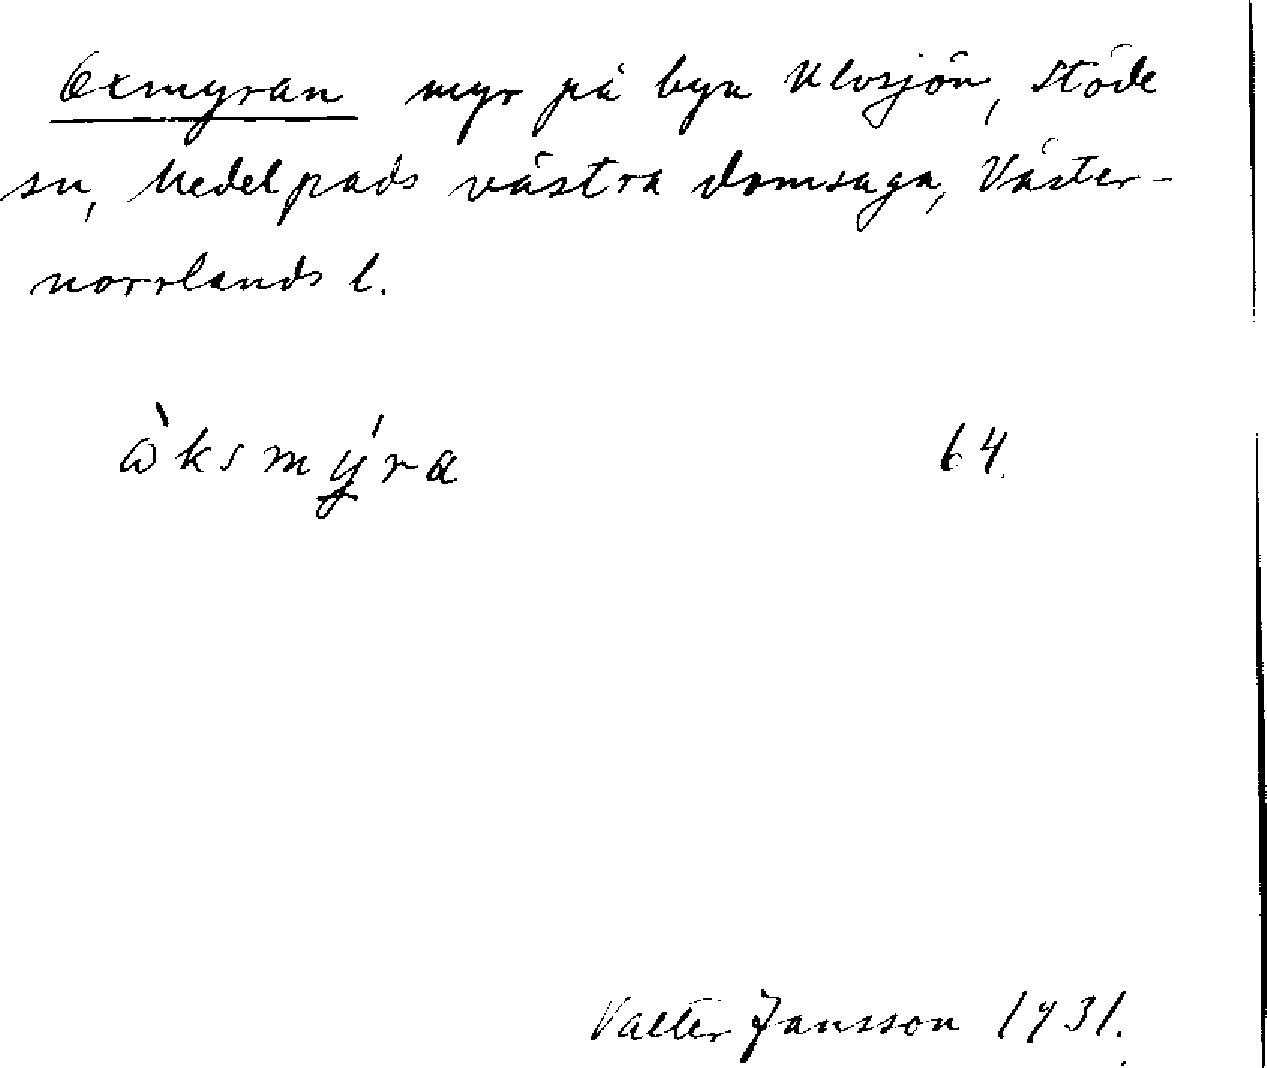 Oxmyran myr på byn Ulvsjön, Stöde
sn, Medelpads västra domsaga, Väster-
norrlands l.
ὼksmýra 64.
Valter Jansson 1931.